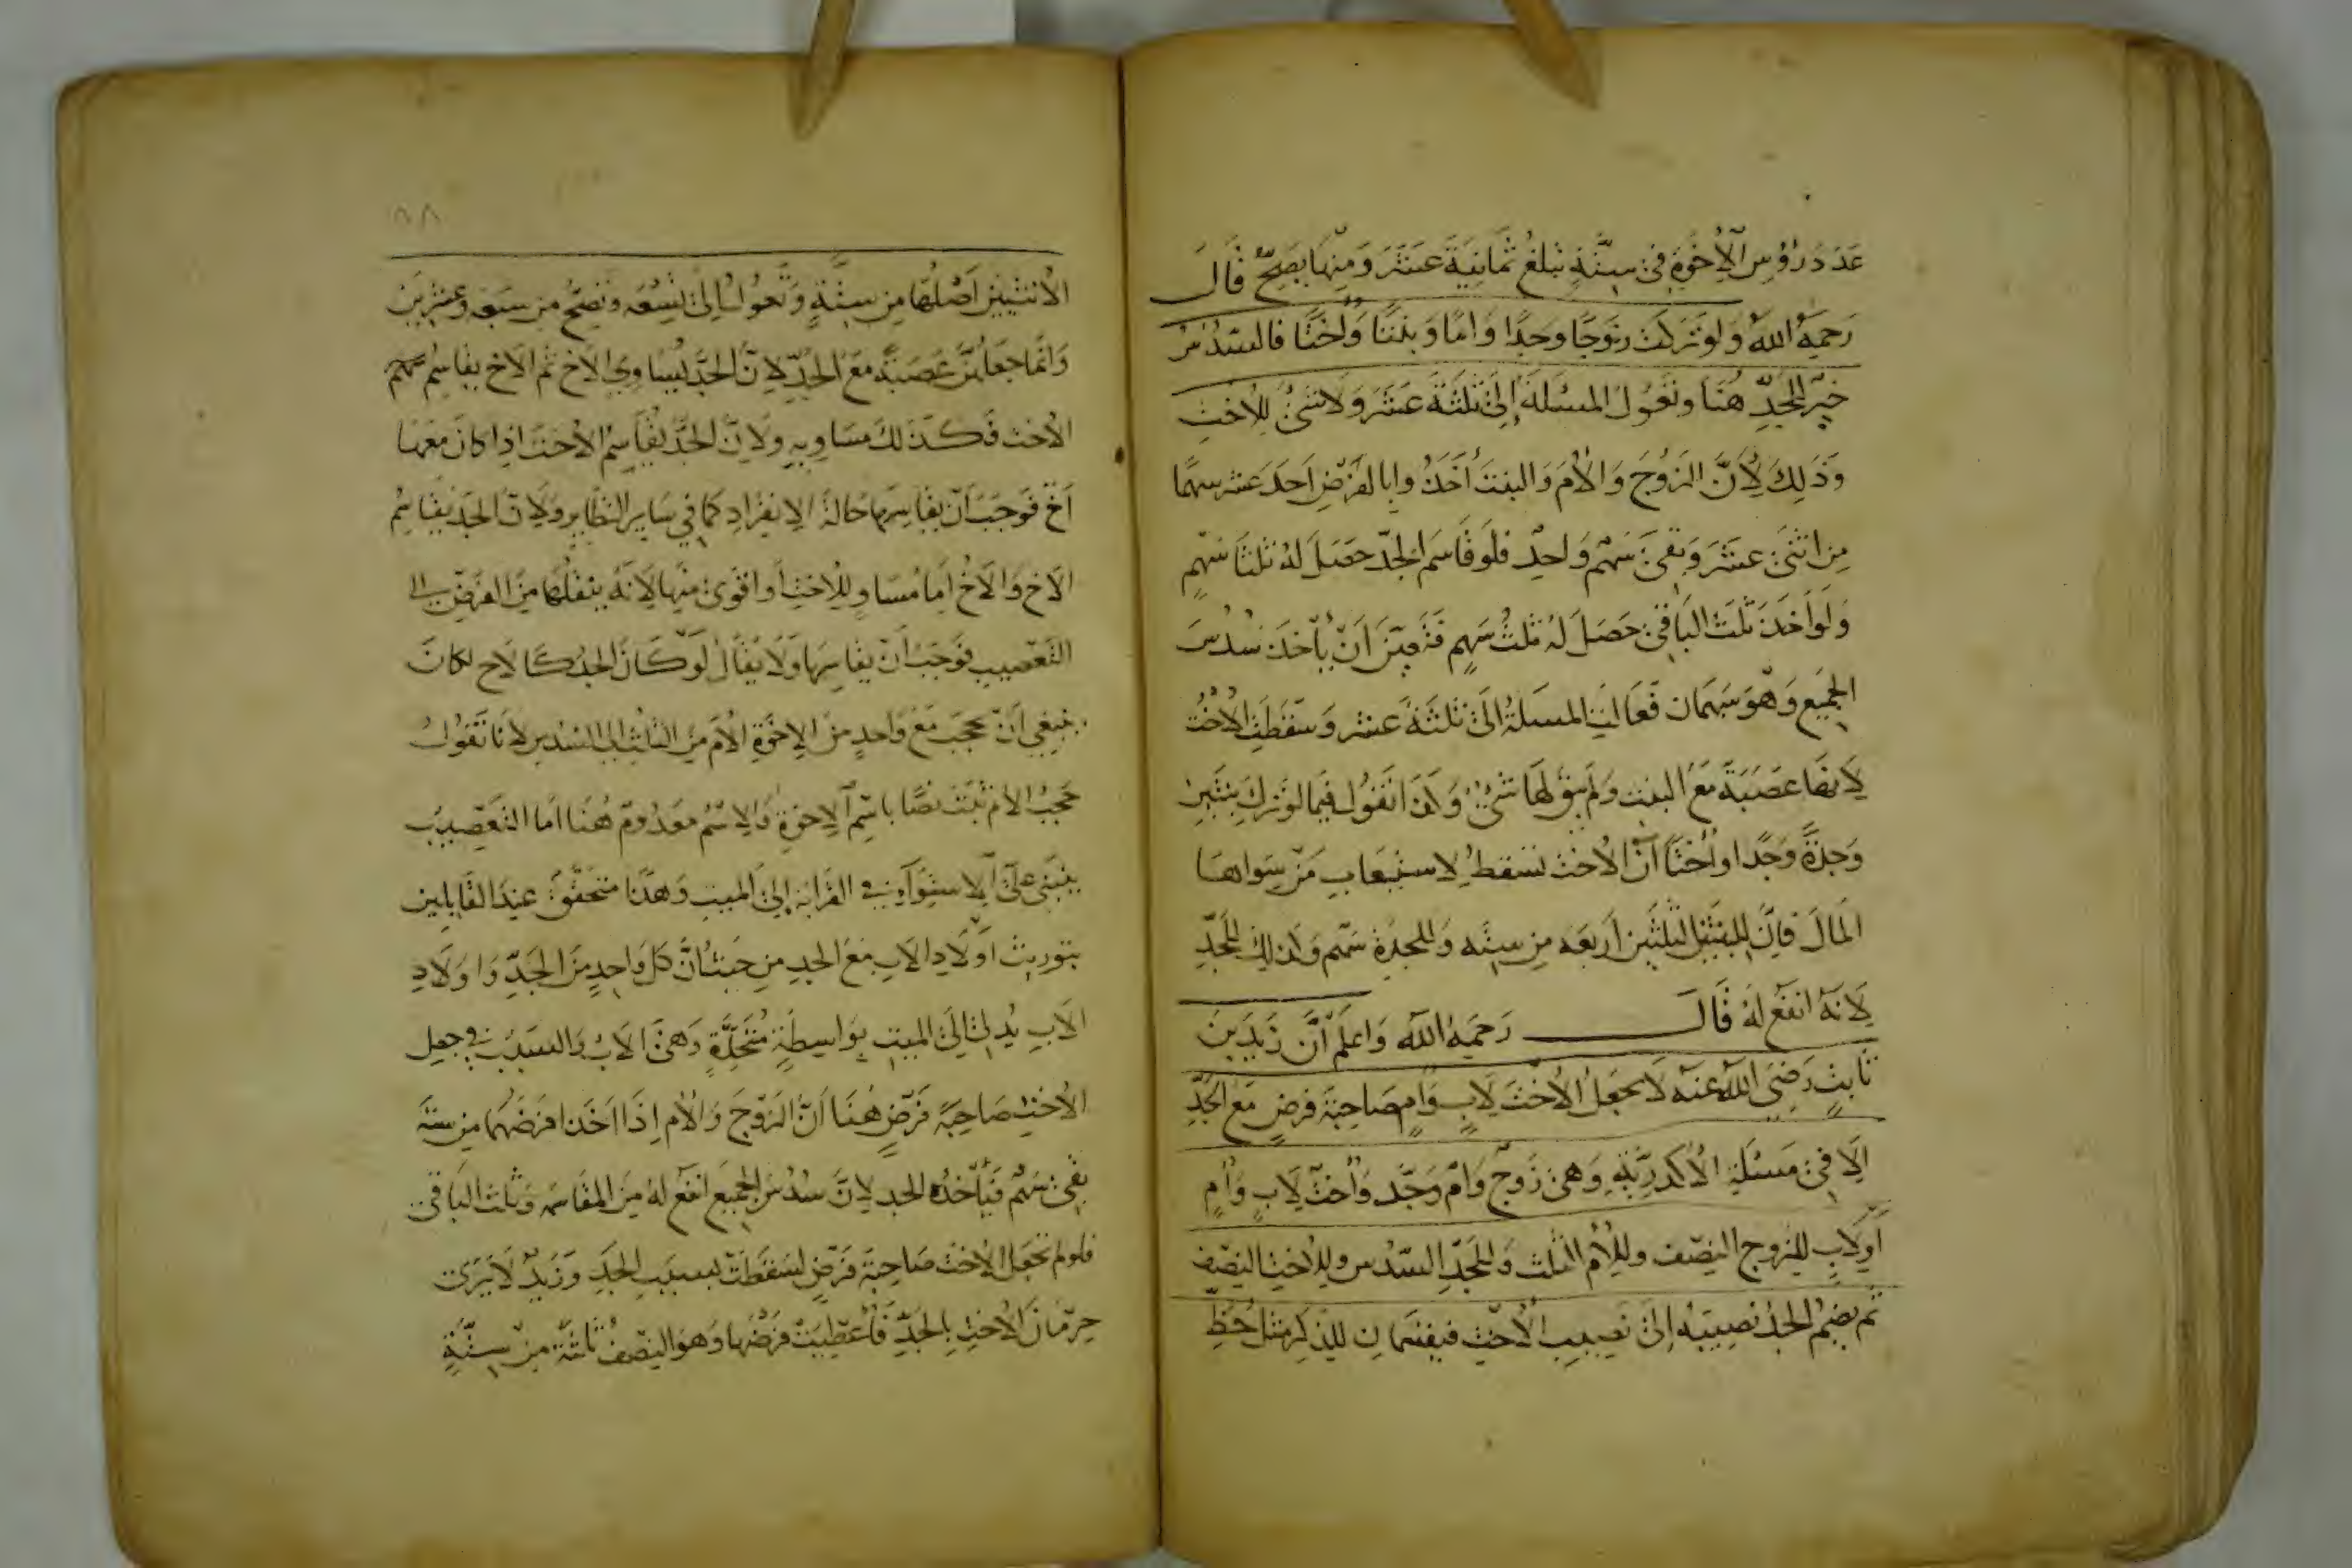 عَدَدَ رُؤُسِ الْاِخْوَةِ فى سِتَّةٍ تبلغ ثمانِيَةَ عَشَرَ وَمِنْهَا تصِحّ قَالَ
رَحِمَهُ اللهُ وَلَو تَرَكَت زَوجًا وجدًا وَامّا وَبنتًا وَاُختًا فالسُدُس
خَيْرٌ لِلْجَدِّ هُنَا وتَعُولُ المسئلة إِلَى ثلثَةَ عَشَرَ وَلا شَىْءَ لِلْاُختِ
وَذَلِكَ لِأَنَّ الزَوْجَ وَالْاُمَّ وَالبنتَ أَخَذُوا بالفَرْضِ اَحَدَ عَشر سهمًا
مِن اثنَىْ عَشَرَ وَبقىَ سَهْم وَاحِدٌ فلَو قَاسَم الجَدّ حَصَلَ لهُ ثلثَا سَهْمٍ
وَلَو أخَذَ ثلثَ البَاقِى حَصَلَ لهُ ثلثُ سَهمٍ فَتَعيَّنَ اَنْ يأخذَ سُدسَ
الجَمِيعِ وَهُوَ سَهمَان فَعَالَتِ المسئلةُ اِلَى ثلثَةَ عشر وَسَقَطَتِ الْاُخْتُ
لِاَنهَا عَصَبَةٌ مَعَ البنت وَلَم يبقَ لهَا شَىْءٌ وَلهذَا نَقُولُ فِيمَا لو تَركَ بنتَينِ
وَجدَّةً وَجَدًّا واُختًا اَنّ الْاُخْتَ تسقطُ لِاستِيعَابِ مَنْ سِوَاهَا
المَالَ فاِنَّ لِلبِنتَينِ الثُلثَينِ اَربعَه مِن ستَّه وَللجدَّةِ سَهم وَكذلِكَ لِلْجَدِّ
لِاَنّهُ انفَعُ لَهُ قَالَ رَحِمَهُ اللهُ وَاعلَم أنَّ زَيدَ بنَ
ثَابتٍ رَضِىَ اللهُ عَنهُ لَا يجعَلُ الْاُخْتَ لِاَبٍ وَاُمٍ صَاحِبَةَ فرضٍ مَعَ الجَدِّ
اِلَّا فِى مَسئَلَةِ الْاَكدَرِيَّةِ وَهىَ زَوْجٌ وَاُمٌّ وَجَدٌّ وَاُختٌ لِاَبٍ وَاُمٍ
اَوْ لِاَبٍ لِلزَّوجِ النِصْف وللْاُمِّ الثلث وَلِلْجَدِّ السّدُس ولِلْاُختِ النِصْف
ثُم يضُمُّ الجَدُّ نصِيبَهُ اِلى نَصِيبِ الْاُختِ فيقتسِمَانِ للذَكَرِ مثل حَظِّ
الْاُنثيَينِ اَصْلُهَا مِن سِتَّةٍ وَتَعُولُ اِلى تِسْعَه وَتصِحُّ مِن سَبعَه وَعشرِينَ
وَانّمَا جعَلَهُنَّ عَصَبَةً مَعَ الجَدِّ لِاَنَّ الجَدَّ يُسَاوِى الْاَخ ثم الْاَخ يقَاسِمُهُمْ
الْاُخت فَكَذَلكَ مسَاويهِ وَلِاَنَّ الجَدَّ يُقَاسِمُ الْاُخْتَ اِذا كانَ مَعَهَا
اَخٌ فَوَجَبَ اَنْ يقَاسِمَهَا حَالةَ الِانفرَادِ كمَا فِي سَايِرِ النظَايرِ وَلِاَنّ الجَدّ يقَاسِمُ
الْاَخ وَالْاَخُ اِمّا مُسَاوٍ لِلْاُختِ أو اقوَى مِنهَا لِاَنَّهُ ينقلُهَا مِنَ الفَرْضِ الى
التَعْصِيبِ فَوَجَبَ اَن يقَاسِمَهَا وَلَا يُقَالُ لَوْ كَانَ الجَدُّ كَالْاَخِ لكَانَ
ينبغِي اَنْ يحجبَ مَعَ وَاحِدٍ مِنَ الْاِخْوَةِ الْاُمّ مِنَ الثلثِ اِلى السُدسِ لِاَنّا نَقُولُ
حَجْبُ الْاُمِّ ثَبتَ نصًّا باسْمِ الْاِخوَةِ وَالِاسْمُ مَعدُومٌ هُنَا امّا التَعْصِيبُ
يَنبَنِى عَلَى الِاستِوَآءِ فى القَرَابَه اِلى المَيتِ وَهَذَا متحَقِّقٌ عِندَ القَايِلِين
بتورِيثِ اَوْلَادِ الْاَبِ مَعَ الجد مِن حَيثُ اَنّ كلَّ وَاحِدٍ مِنَ الجَدِّ وَاوْلَادِ
الْاَبِ يُدلِى اِلَى المَيتِ بِوَاسِطَةٍ مُتَّحِدَةٍ وَهِىَ الْاَبُ وَالسَبَبُ فى جعلِ
الْاُختِ صَاحِبَةَ فَرْضٍ هُنَا اَنَّ الزَّوْجَ وَالْاُمّ اِذَا اَخَذا فرضَهُمَا مِن ستّه
بقىَ سَهم فَيَأْخذُهُ الجد لِاَنَّ سُدُسَ الجَمِيعِ انفَعُ لهُ مِنَ المقَاسمَه وَثلث البَاقى
فلو لم نجعَلِ الْاُختَ صَاحِبَةَ فَرْضٍ لسَقَطَتْ بسبَبِ الجَدِّ وَزَيدٌ لَا يَرَى
حِرْمَانَ الْاُختِ بِالجَدِّ فَاُعْطِيَتْ فرْضَهَا وَهوَ النِصفُ ثَلثَة مِن سِتَّةٍ